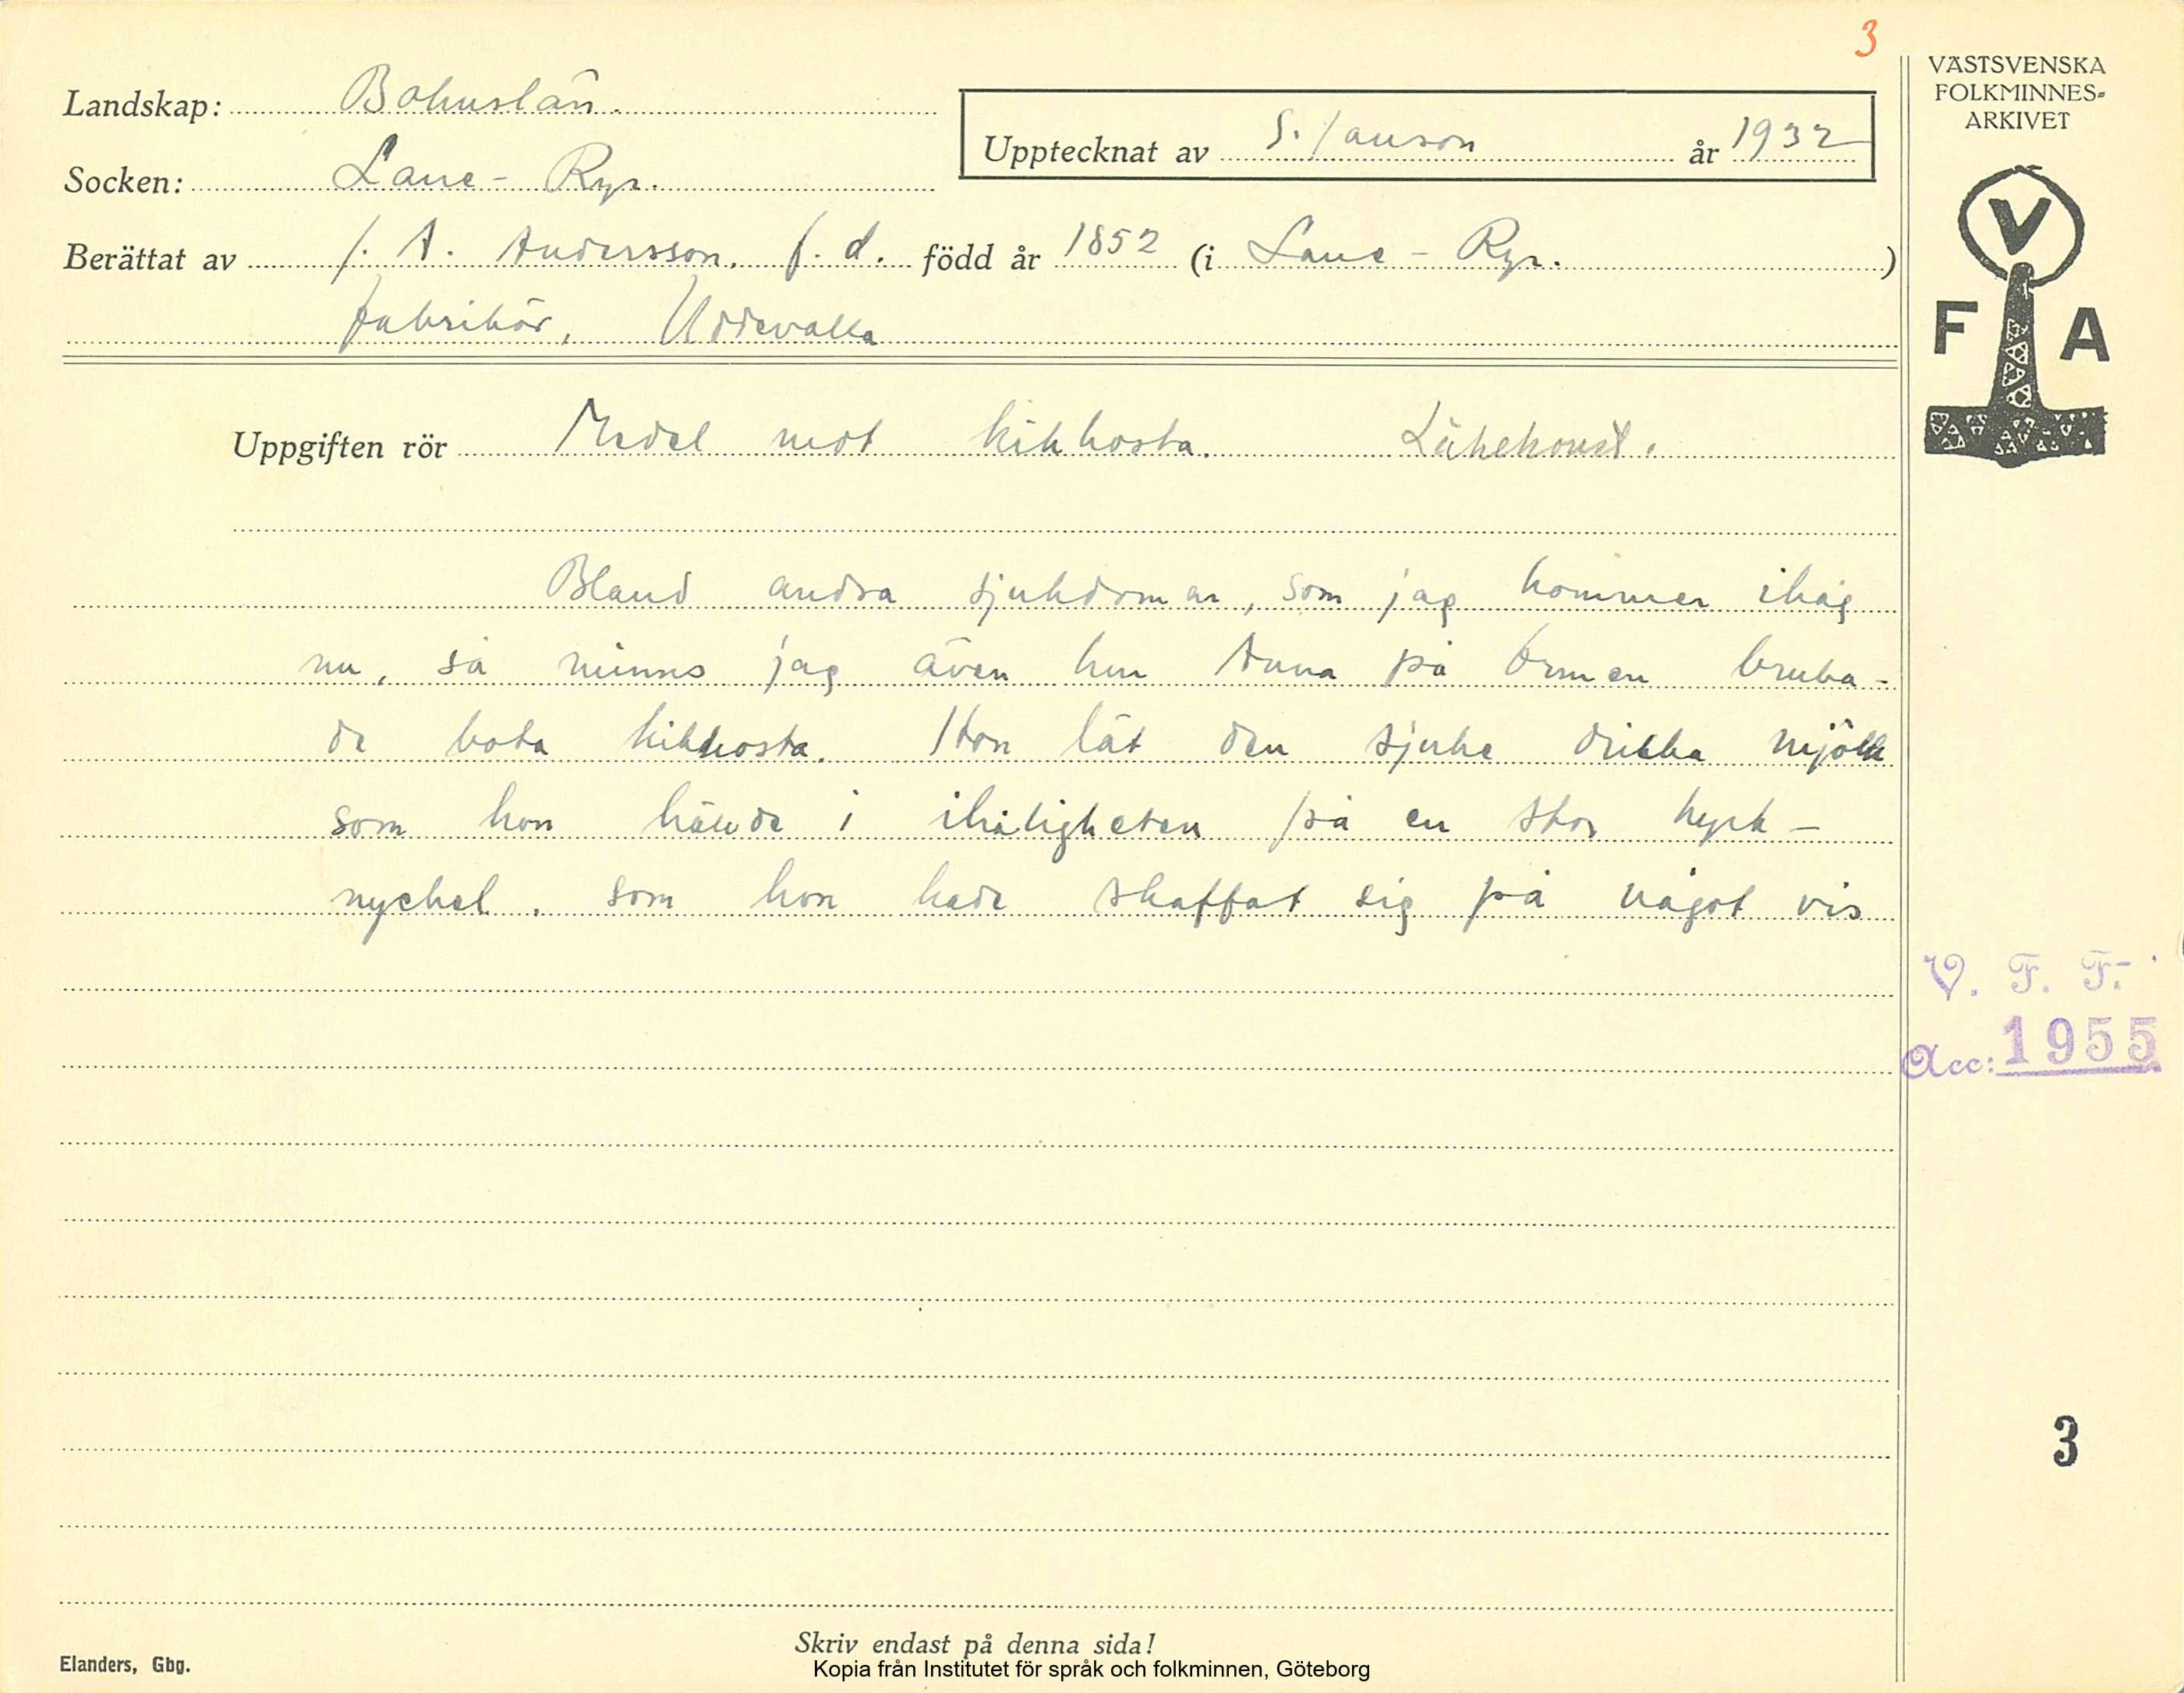 3
VÄSTSVENSKA
FOLKMINNES-
ARKIVET
Landskap: Bohuslän.
Upptecknat av S. Janson år 1932
Socken: Lane-Ryr.
Berättat av J. A. Andersson. f.d. född år 1852 (i Lane-Ryr. )
fabrikör, Uddevalla
V
F A
Uppgiften rör Medel mot kikhosta.
Bland andra sjukdomar, som jag kommer ihåg
nu, så minns jag även hur Anna på Ormen bruka-
de bota kikhosta. Hon lät den sjuke dricka mjölk
som hon hällde i ihåligheten på en stor kyrk-
nyckel. som hon hade skaffat sig på något vis
V. F. F.
Acc: 1955
3
Skriv endast på denna sida!
Elanders, Gbg.
Kopia från Institutet för språk och folkminnen, Göteborg